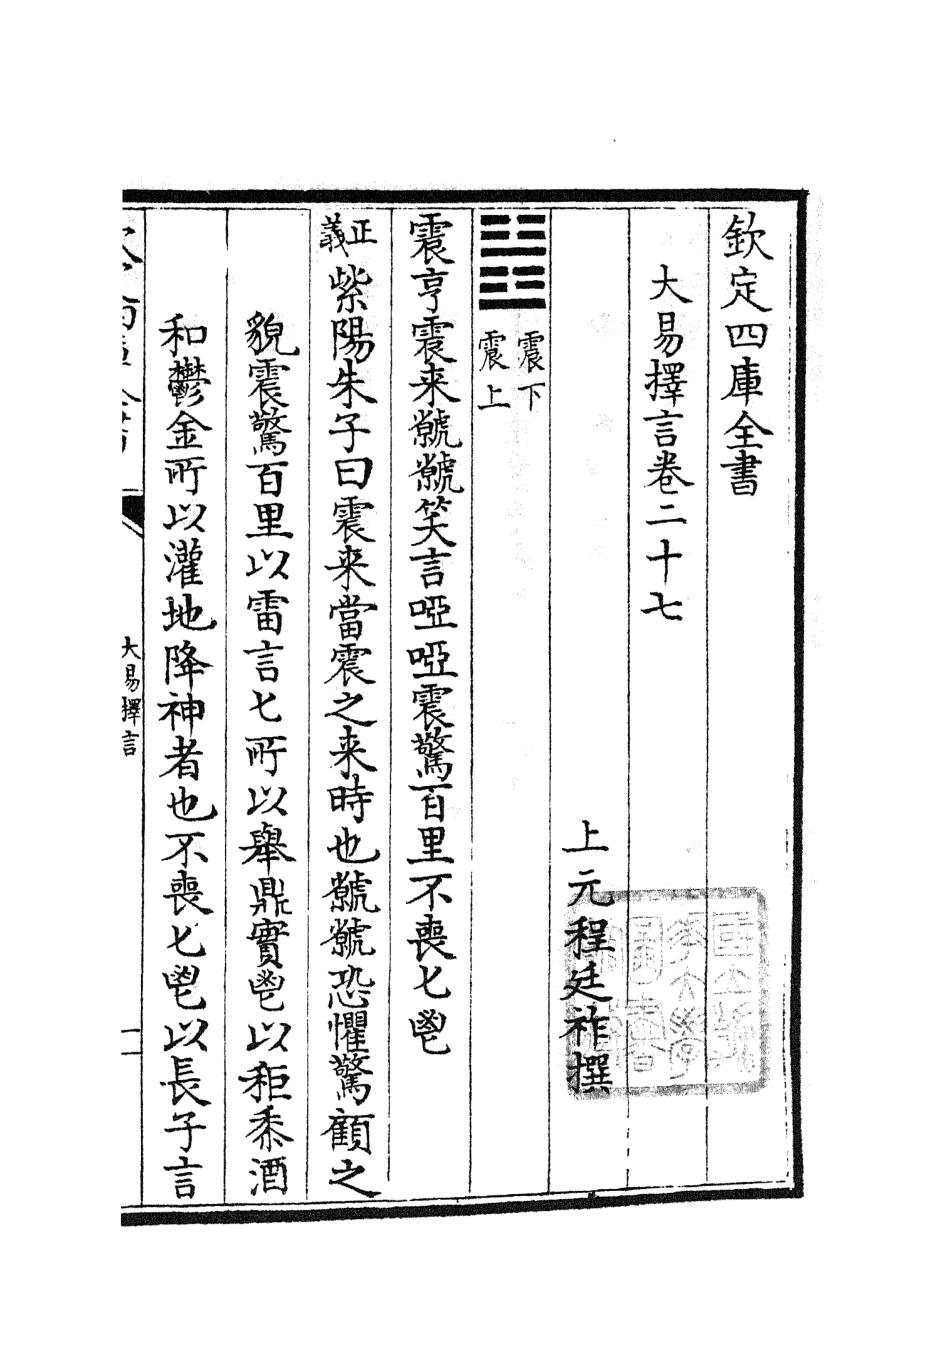 欽定四庫全書
大易擇言卷二十七
上元程廷祚撰
䷲震下
震上
震亨震来虩虩笑言啞啞震驚百里不喪匕鬯
正義紫陽朱子曰震来當震之来時也虩虩恐懼驚顧之
貌震驚百里以雷言匕所以舉鼎實鬯以秬黍酒
和鬱金所以灌地降神者也不喪匕鬯以長子言
大易擇言
一